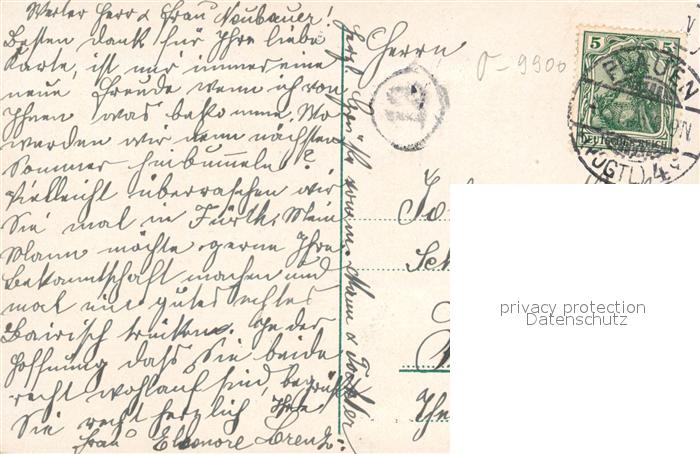 Werter Herr & Frau Neubauer!
Besten Dank für Ihre liebe
Karte, ist mir immer eine
neue Freude wenn ich von
Ihnen was bekomme. Wo
werden wir denn nächsten
Sommer hinbummeln?
Vielleicht überraschen wir
Sie mal in Fürth. Mein
Mann möchte gerne Ihre
Bekanntschaft machen und
mal ein gutes echtes
Bairisch trinken. In der
Hoffnung dass Sie beide
recht wohlauf sind, begrüßt
Sie recht herzlich Ihre
Frau Eleonore Lorenz.
Herzl. Grüße von m. Mann & Tochter
Herrn
σ-9900
12
5 5
DEUTSCHES REICH
PLAUEN
(VOGTL) 4
privacy protection
Datenschutz